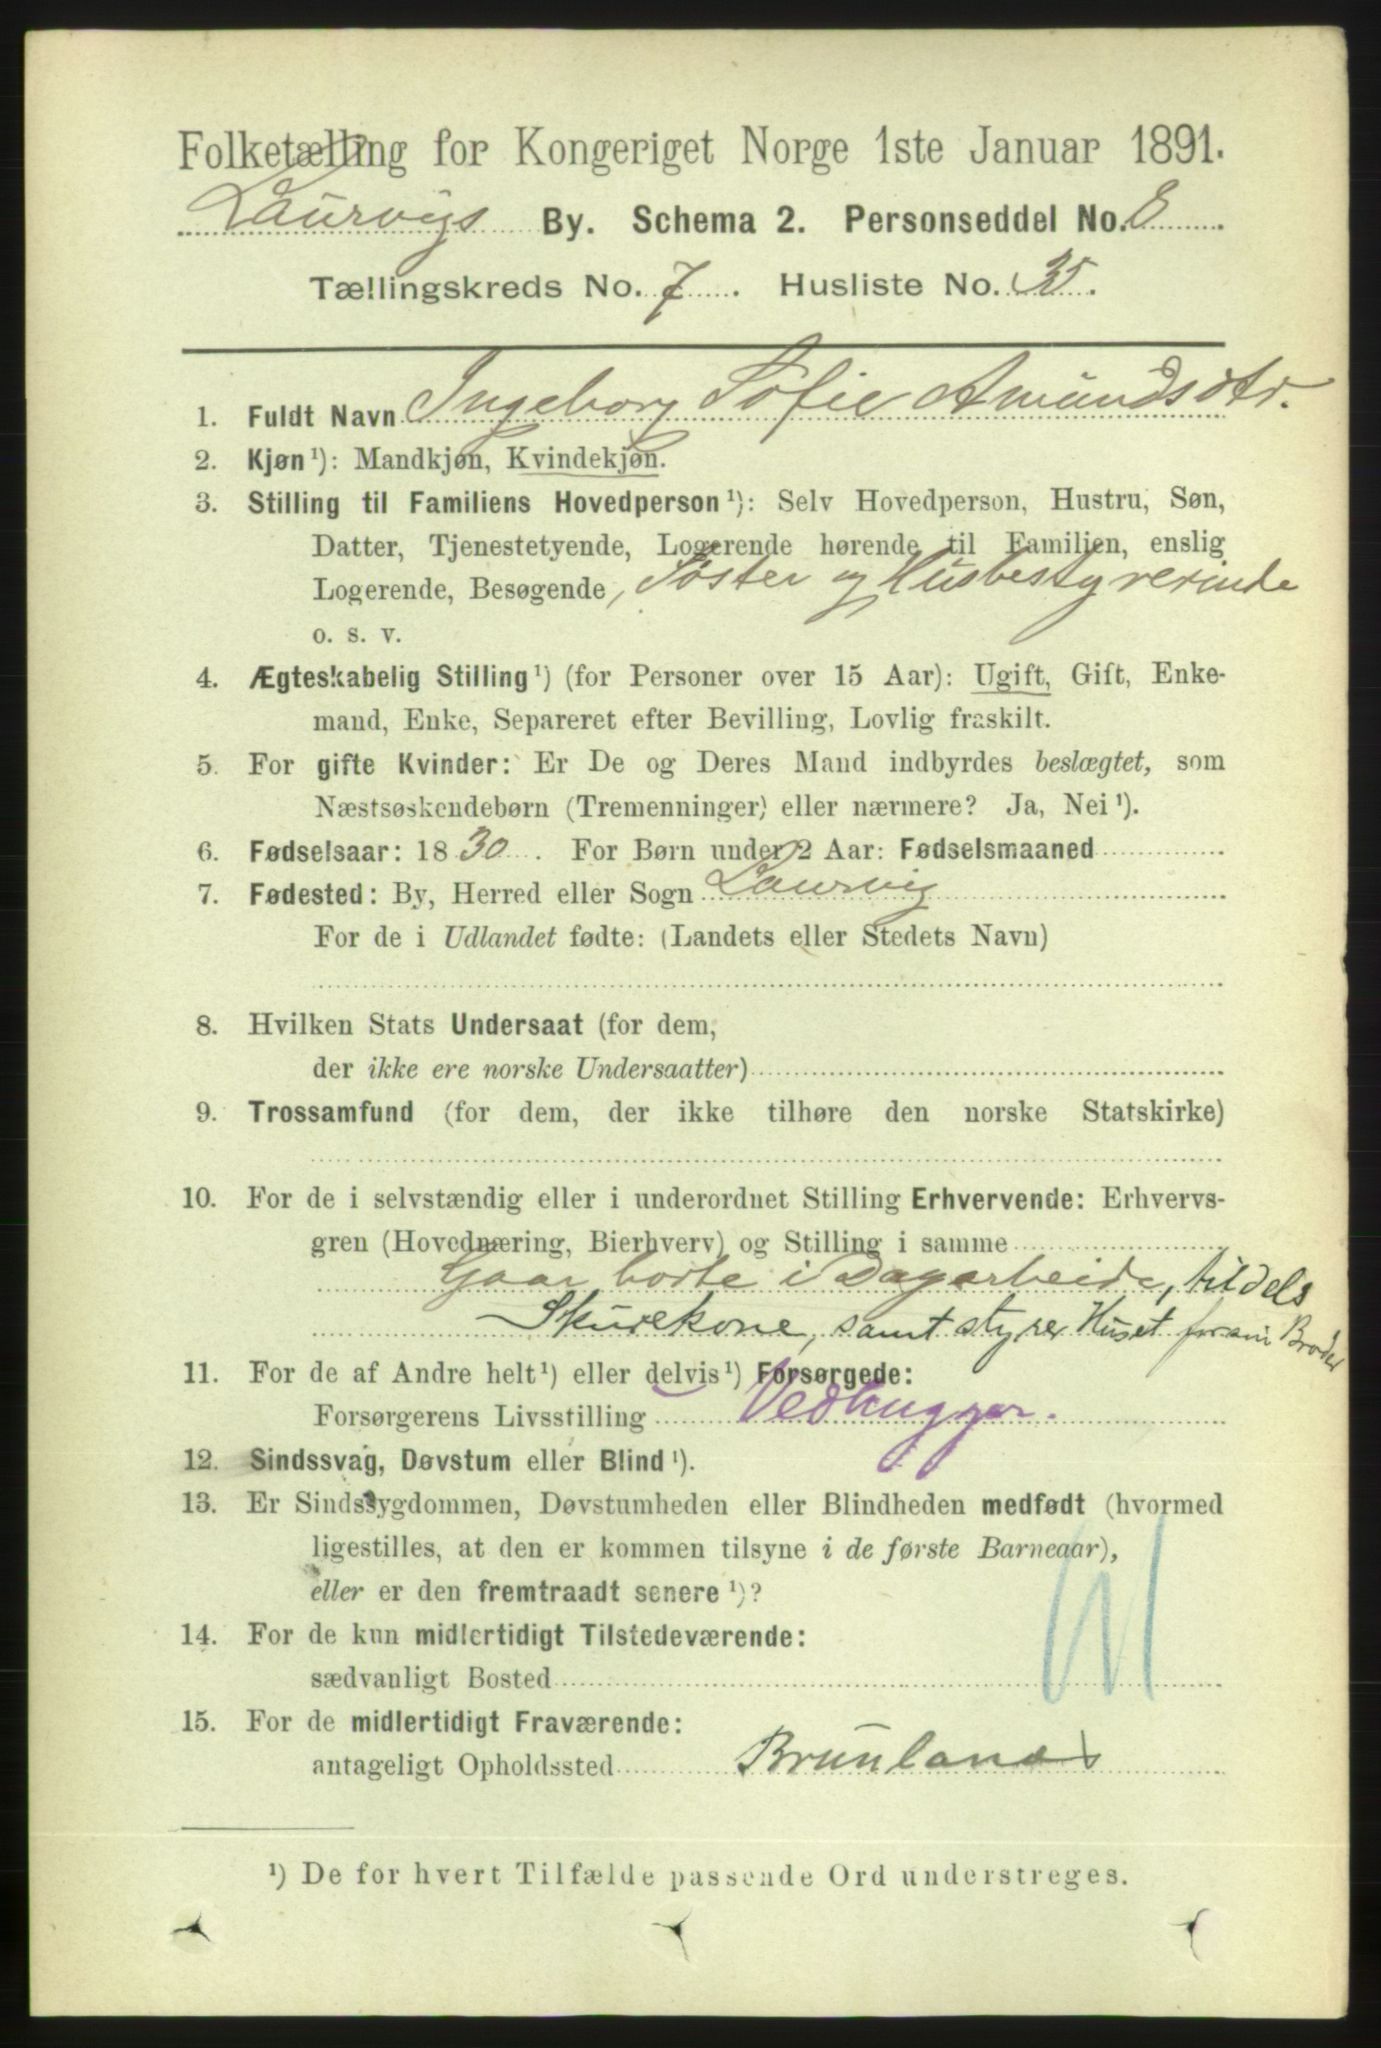 Folketælling for Kongeriget Norge 1ste Januar 1891.
Laurvigs By. Schema 2. Personseddel No. 8
Tællingskreds No. 7. Husliste No. 35.
1. Fuldt Navn Ingeborg Sofie Amundsdtr.
2. Kjøn¹): Mandkjøn, Kvindekjøn.
3. Stilling til Familiens Hovedperson¹): Selv Hovedperson, Hustru, Søn,
Datter, Tjenestetyende, Logerende hørende til Familien, enslig
Logerende, Besøgende, Søster og Husbestyrerinde
o. s. v.
4. Ægteskabelig Stilling¹) (for Personer over 15 Aar): Ugift, Gift, Enke-
mand, Enke, Separeret efter Bevilling, Lovlig fraskilt.
5. For gifte Kvinder: Er De og Deres Mand indbyrdes beslægtet, som
Næstsøskendebørn (Tremenninger) eller nærmere? Ja, Nei¹).
6. Fødselsaar: 1830. For Børn under 2 Aar: Fødselsmaaned
7. Fødested: By, Herred eller Sogn Laurvig
For de i Udlandet fødte: (Landets eller Stedets Navn)
8. Hvilken Stats Undersaat (for dem,
der ikke ere norske Undersaatter)
9. Trossamfund (for dem, der ikke tilhøre den norske Statskirke)
10. For de i selvstændig eller i underordnet Stilling Erhvervende: Erhvervs-
gren (Hovednæring, Bierhverv) og Stilling i samme
Gaar borte i Dagarbeide, tildels
Skurekone, samt styrer Huset for sin Broder
11. For de af Andre helt¹) eller delvis¹) Forsørgede:
Forsørgerens Livsstilling Vedhugger.
12. Sindssvag, Døvstum eller Blind¹).
13. Er Sindssygdommen, Døvstumheden eller Blindheden medfødt (hvormed
ligestilles, at den er kommen tilsyne i de første Barneaar),
eller er den fremtraadt senere¹)?
14. For de kun midlertidigt Tilstedeværende:
sædvanligt Bosted
15. For de midlertidigt Fraværende:
antageligt Opholdssted Brunlanæs
¹) De for hvert Tilfælde passende Ord understreges.